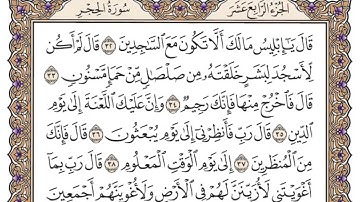 الجزء الرابع عشر
سورة الحجر
قَالَ يَٰٓإِبۡلِيسُ مَالَكَ أَلَّا تَكُونَ مَعَ ٱلسَّٰجِدِينَ ٣٢ قَالَ لَمۡ أَكُن
لِّأَسۡجُدَ لِبَشَرٍ خَلَقۡتَهُۥ مِن صَلۡصَٰلٖ مِّنۡ حَمَإٖ مَّسۡنُونٖ ٣٣
قَالَ فَٱخۡرُجۡ مِنۡهَا فَإِنَّكَ رَجِيمٞ ٣٤ وَإِنَّ عَلَيۡكَ ٱللَّعۡنَةَ إِلَىٰ يَوۡمِ
ٱلدِّينِ ٣٥ قَالَ رَبِّ فَأَنظِرۡنِيٓ إِلَىٰ يَوۡمِ يُبۡعَثُونَ ٣٦ قَالَ فَإِنَّكَ
مِنَ ٱلۡمُنظَرِينَ ٣٧ إِلَىٰ يَوۡمِ ٱلۡوَقۡتِ ٱلۡمَعۡلُومِ ٣٨ قَالَ رَبِّ بِمَآ
أَغۡوَيۡتَنِي لَأُزَيِّنَنَّ لَهُمۡ فِي ٱلۡأَرۡضِ وَلَأُغۡوِيَنَّهُمۡ أَجۡمَعِينَ